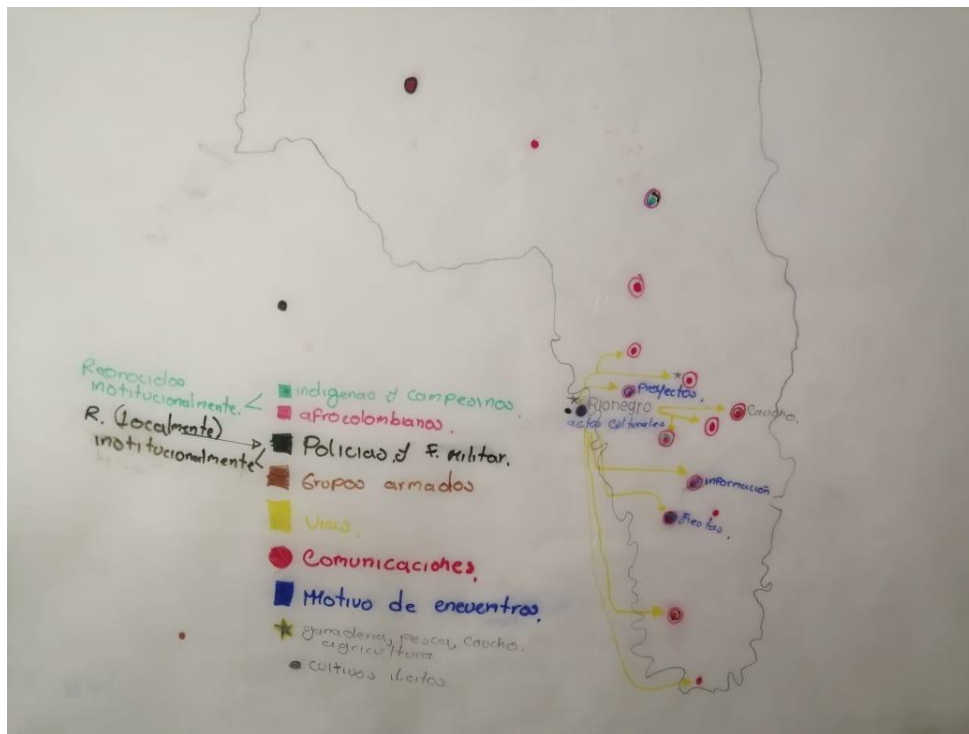 Reconocidos
institucionalmente.
R. (Localmente)
institucionalmente
indigenas y campesinos.
afrocolombianos.
Policias y F. Militar.
Grupos armados
Vias
Comunicaciones.
Motivo de encuentros.
ganaderia, pesca, caucho.
agricultura
cultivos ilicitos.
Proyectos.
Rionegro
actos culturales
Caucho.
información
Fiestas.